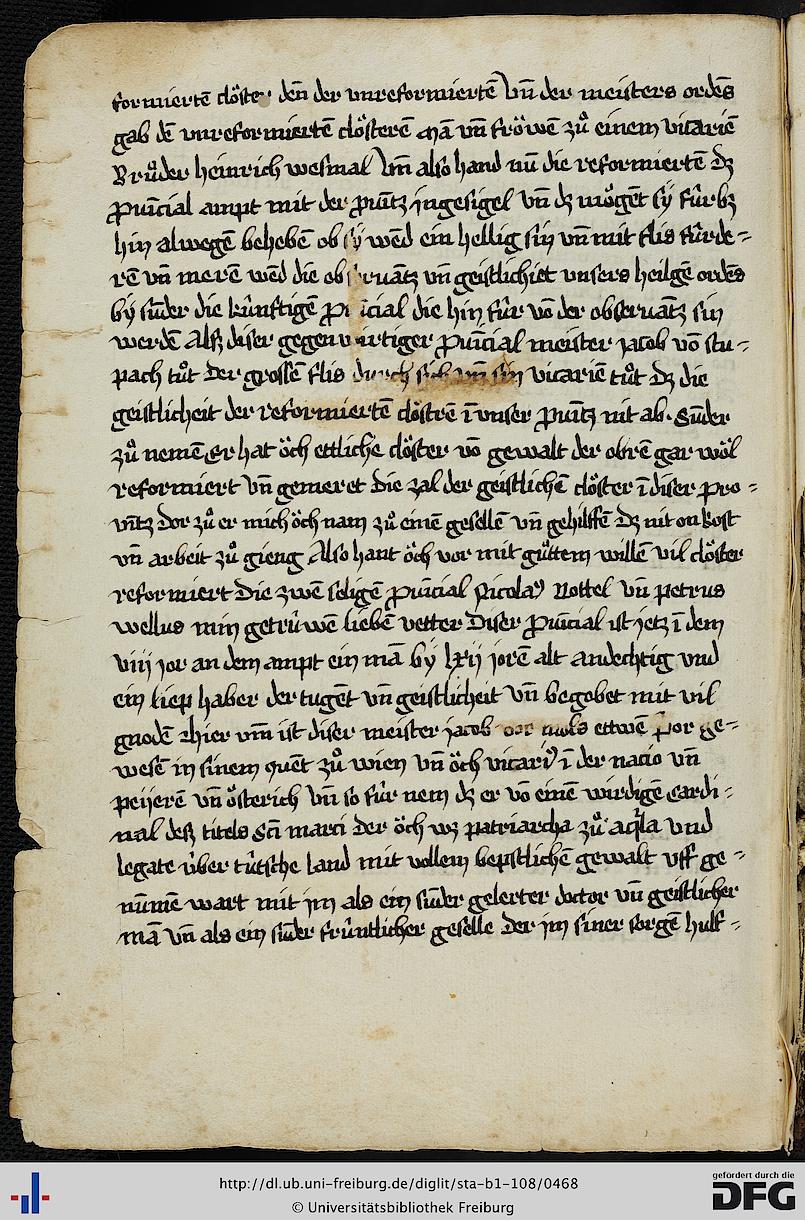 formiertē clöster denē der vnreformiertē Vn̄ der meisters ordēs
gab dē vnreformiertē clösterē Mā vn̄ fröwē zů einem vicariē
Brůder heinrich wesmal Vm̄ also hand nū die reformiertē dz
Prouīcial ampt mit der prouītz jngesigel vn̄ dz mögēt sy fúrbz
hin alwegē behebē ob sy wēd ein hellig sin vn̄ mit flis fúrde-
rē vn̄ merē wēd die obseruātz vn̄ geistlichiēt vnsers heilgē ordēs
by sūder die kúnftigē prouīcial die hin fúr vō der obseruātz sin
werdē Alsz diser gegenwirtiger prouīcial meister jacob vō stu-
pach tůt der grossē flis durch sich vn̄ sin vicariē tůt dz die
geistlicheit der reformiertē clöstrē ī vnser prouītz nit ab. Sūder
zů nemē Er hat öch ettliche clöster vō gewalt der obrē gar wöl
reformiert vn̄ gemeret die zal der geistlichē clöster ī diser pro-
uītz dor zů er mich öch nam zů einē gesellē vn̄ gehilffē dz nit on kost
vn̄ arbeit zů gieng Also hant öch vor mit gůttem willē vil clöster
reformiert die zwē seligē prouīcial Nicolaꝰ Nottel vn̄ petrus
wellus min getrúwē liebē vetter Diser prouīcial ist jetz ī dem
viij jor an dem ampt ein mā by lxij jorē alt andechtig vnd
ein liep haber der tugēt vn̄ geistlicheit vn̄ begobet mit vil
gnodē Hier vm̄ ist diser meister jacob vor mols ettwē por ge-
wesē in sinem quēt zů wien vn̄ öch vicariꝰ ī der nacio vn̄
peijerē vn̄ österich Vn̄ so fúr nem dz er vō einē wirdigē Cardi-
nal desz titels Scī marci der öch wz patriarcha zů aqla Vnd
legate úber tútsche land mit vollem bepstlichē gewalt vff ge-
nūmē wart mit jm als ein sūder gelerter doctor vn̄ geistlicher
mā Vn̄ als ein sūder frúntlicher geselle der jm siner sorgē hulf-
http://dl.ub.uni-freiburg.de/diglit/sta-b1-108/0468
© Universitätsbibliothek Freiburg
gefördert durch die
DFG